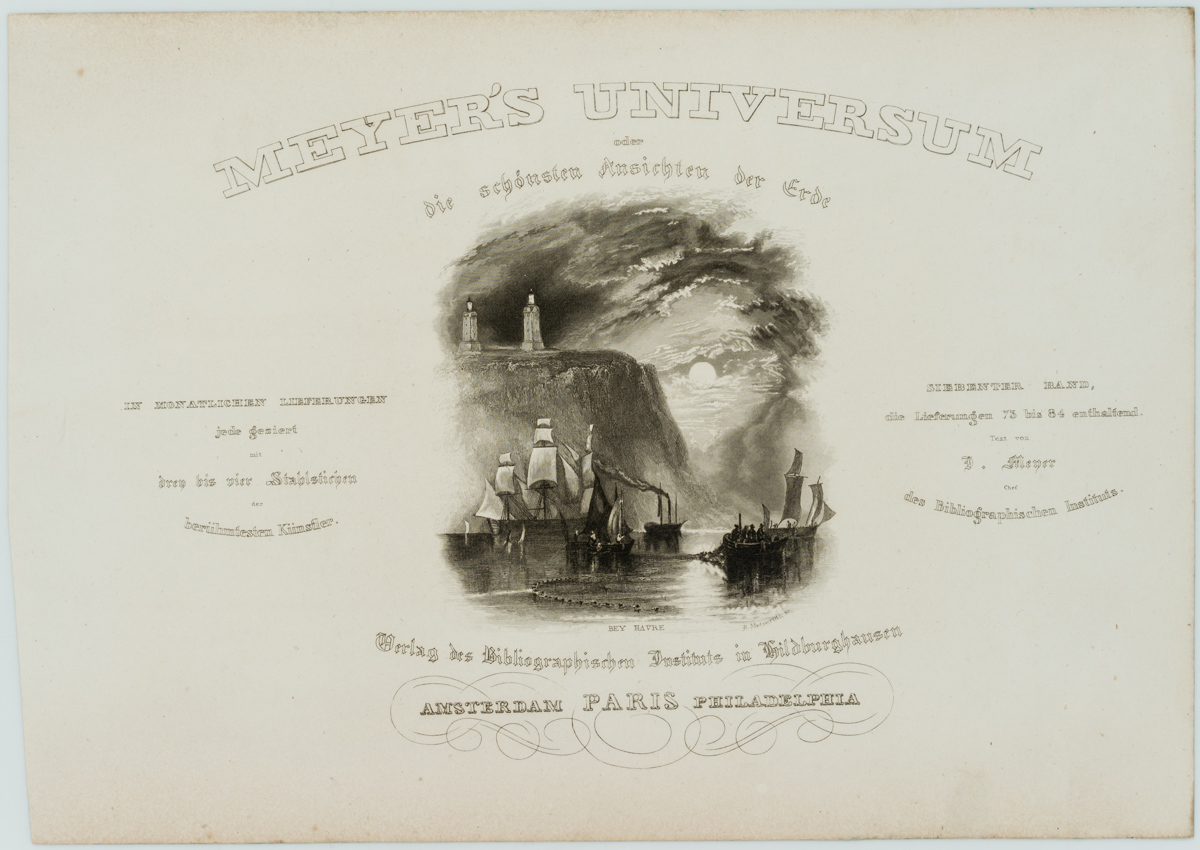 MEYER'S UNIVERSUM
oder
die schönsten Ansichten der Erde
IN MONATLICHEN LIEFERUNGEN
jede geziert
mit
drey bis vier Stahlstichen
der
berühmtesten Künstler.
SIEBENTER BAND,
die Lieferungen 73 bis 84 enthaltend.
Text von
J. Meyer
Chef
des Bibliographischen Instituts.
BEY HAVRE
Verlag des Bibliographischen Instituts in Hildburghausen
AMSTERDAM PARIS PHILADELPHIA